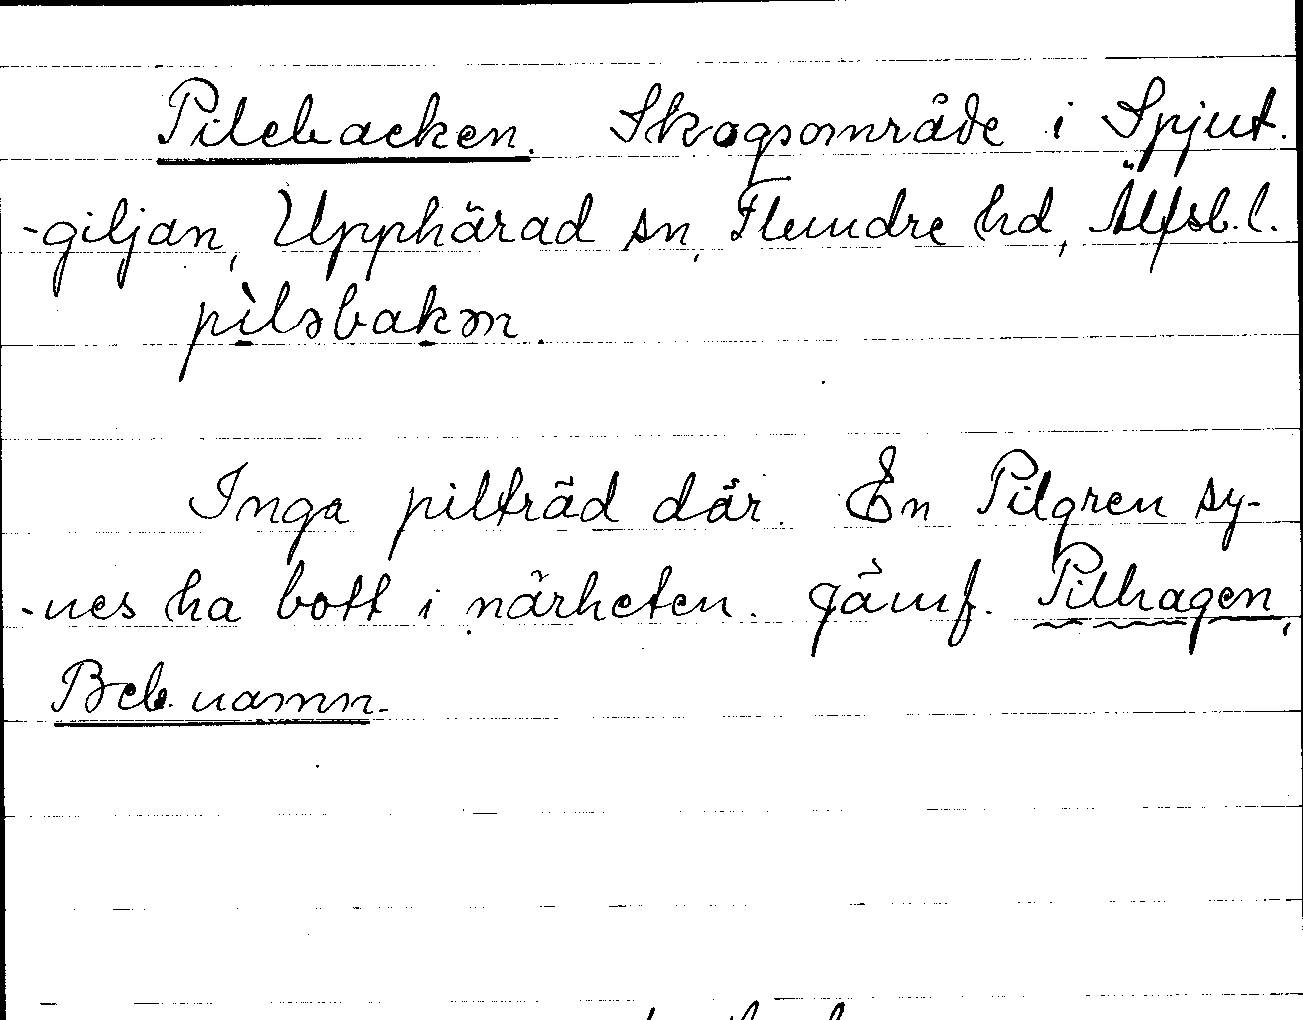 Pilebacken. Skogsområde i Spjut-
-giljan, Upphärad sn, Flundre hd, Älfsb. l.
pìləbakən.
Inga pilträd där. En Pilgren sy-
-nes ha bott i närheten. Jämf. Pilhagen,
Beb. namn.